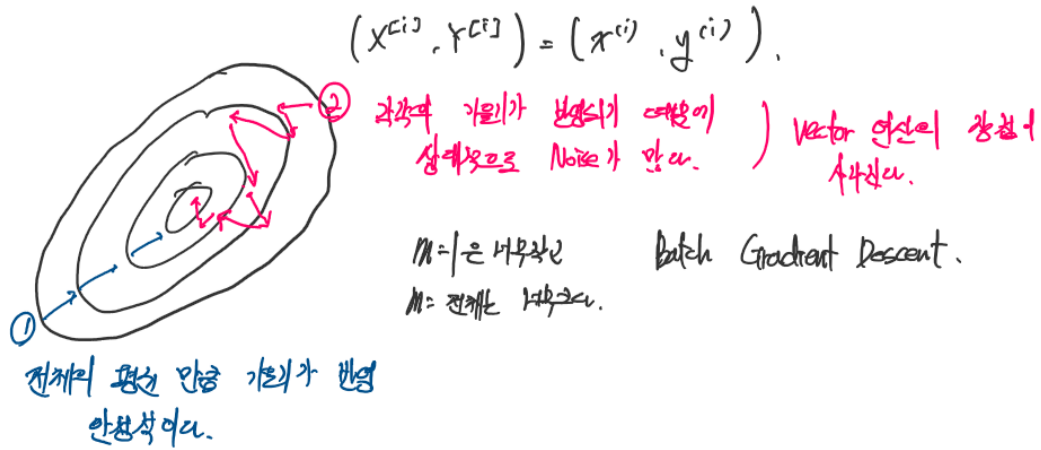 (X^{[i]}, Y^{[i]}) = (x^{(i)}, y^{(i)}).
② 각각의 기울기가 반영되기 때문에
상대적으로 Noise가 많다.
) Vector 연산의 장점이
사라진다.
m=1은 너무작고
m= 전체는 너무크다.
Batch Gradient Descent.
①
전체의 평균 만큼 기울기가 반영
안정적이다.